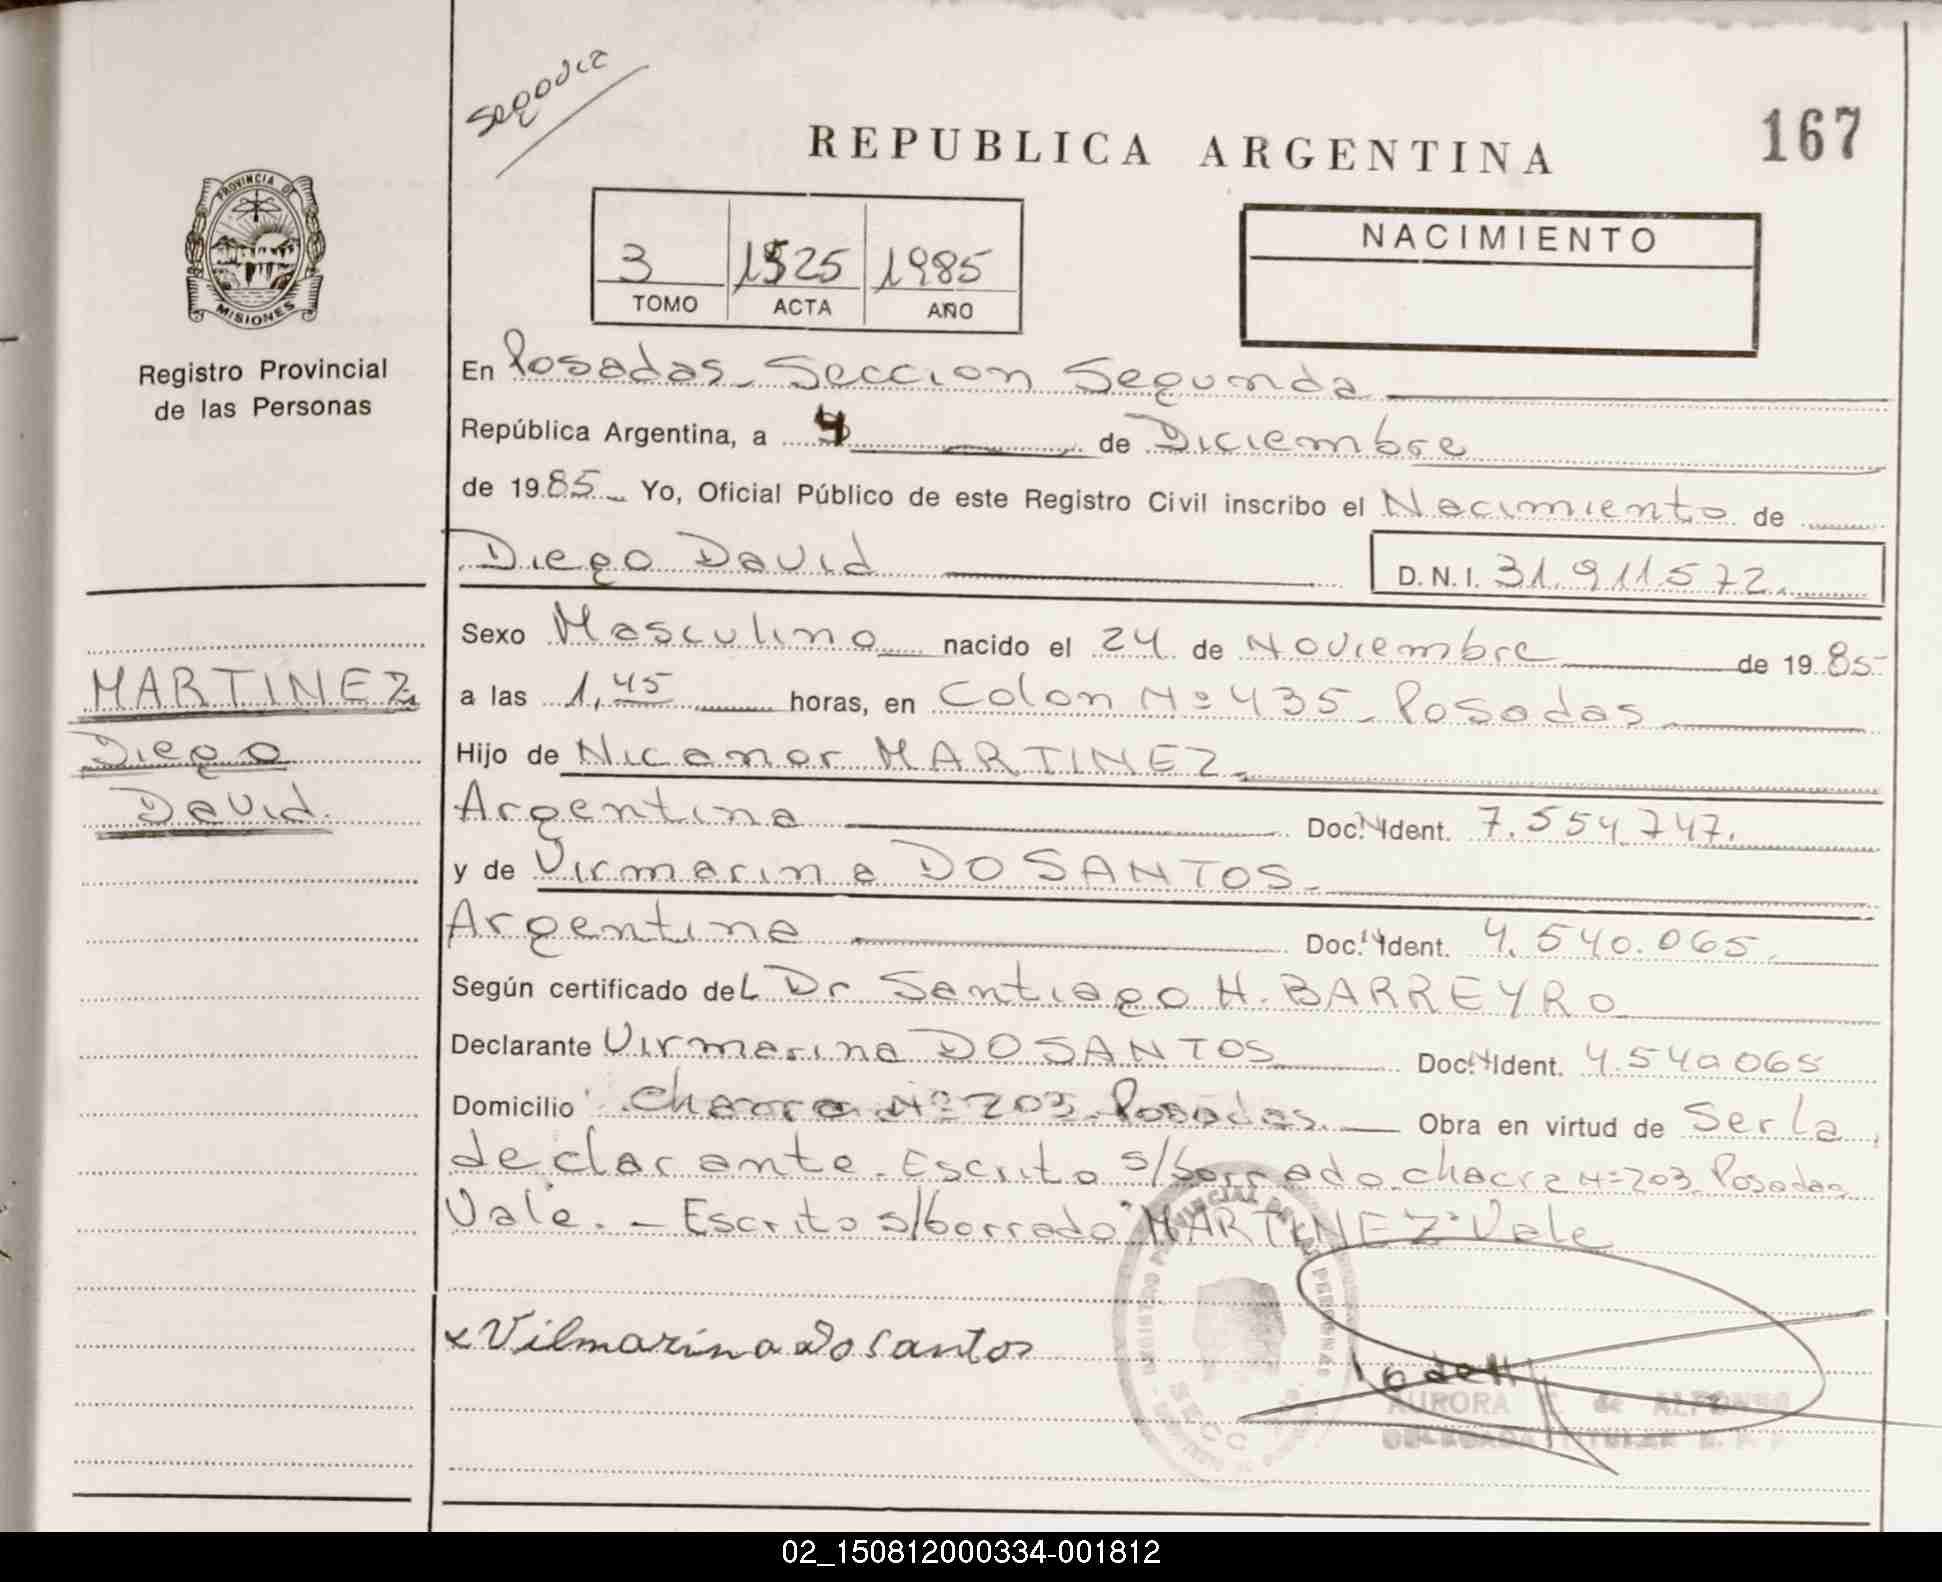 Segodia
REPUBLICA ARGENTINA
167
PROVINCIA DE
MISIONES
Registro Provincial
de las Personas
3 1525 1985
TOMO ACTA AÑO
NACIMIENTO
En Posadas - Seccion Segunda
República Argentina, a 4 de Diciembre
de 1985 Yo, Oficial Público de este Registro Civil inscribo el Nacimiento de
Diego David D.N.I. 31.911.572.
Sexo Masculino nacido el 24 de Noviembre de 1985
MARTINEZ
Diego
David.
a las 1,45 horas, en Colon Nº 435 - Posadas
Hijo de Nicanor MARTINEZ
Argentina Doc. Ident. 7.554.747.
y de Virmarina DO SANTOS.
Argentina Doc. Ident. 4.540.065
Según certificado del Dr Santiago H. BARREYRO
Declarante Virmarina DO SANTOS Doc. Ident. 4.540065
Domicilio Chacra Nº 203. Posadas. Obra en virtud de Ser la
declarante. Escrito s/borrado chacra Nº 203 Posadas
Vale. - Escrito s/borrado "MARTINEZ" Vale
x Vilmarina do Santos
AURORA de ALFONSO
SECC
02_150812000334-001812